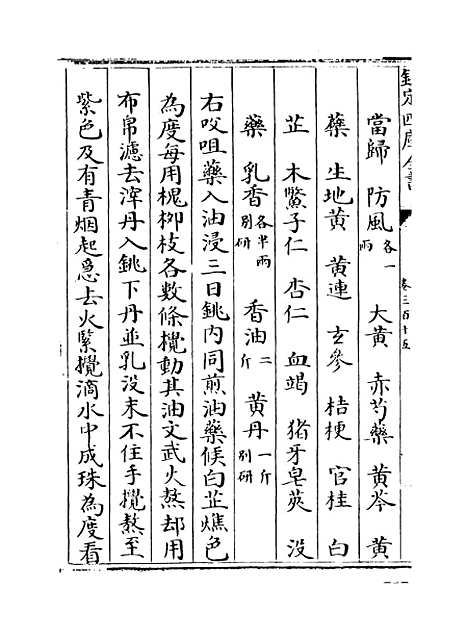 欽定四庫全書
卷三百十五
當歸 防風各一兩 大黃 赤芍藥 黃芩 黃
蘗 生地黃 黃連 玄參 桔梗 官桂 白
芷 木鱉子仁 杏仁 血竭 猪牙皂莢 沒
藥 乳香各半兩別研 香油二斤 黃丹一斤別研
右㕮咀藥入油浸三日銚内同煎油藥候白芷燋色
為度每用槐栁枝各數條攪動其油文武火熬却用
布帛濾去滓丹入銚下丹並乳没末不住手攪熬至
紫色及有青烟起急去火緊攪滴水中成珠為度看